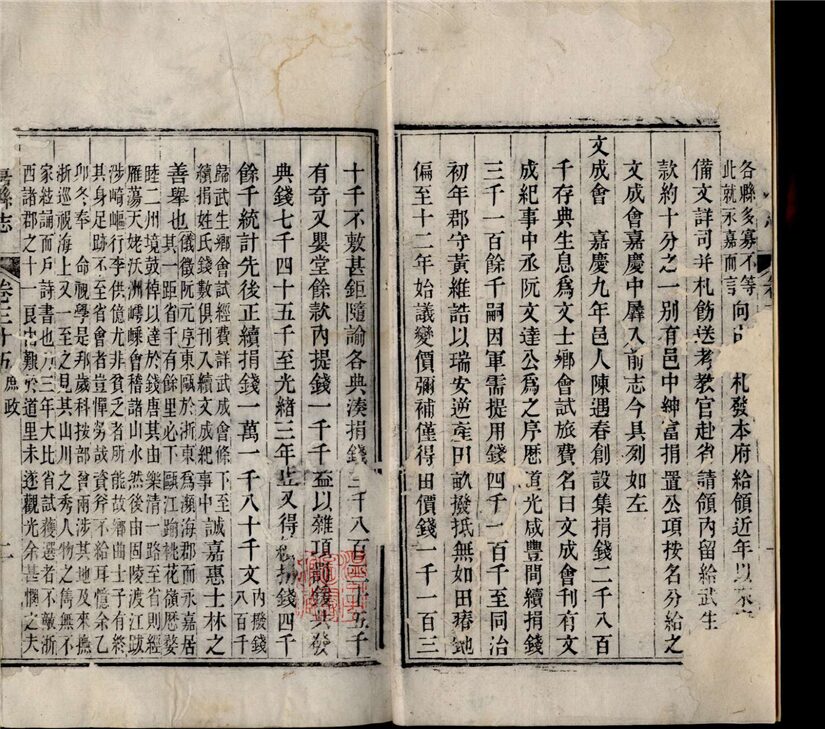 各縣多寡不等
此就永嘉而言
向由 札發本府給領近年以來
備文詳司并札飭送考教官赴省請領內留給武生
款約十分之一別有邑中紳富捐置公項按名分給之
文成會嘉慶中羼入前志今具列如左
文成會 嘉慶九年邑人陳遇春創設集捐錢二千八百
千存典生息爲文士鄉會試旅費名曰文成會刊有文
成紀事中丞阮文達公爲之序歷道光咸豐間續捐錢
三千一百餘千嗣因軍需提用錢四千一百千至同治
初年郡守黃維誥以瑞安逆產田畝撥抵無如田瘠地
偏至十二年始議變價彌補僅得田價錢一千一百三
十千不敷甚鉅隨諭各典湊捐錢三千八百二十五千
有奇又嬰堂餘款內提錢一千千益以雜項額錢共發
典錢七千四十五千至光緒三年止又得續捐錢四千
餘千統計先後正續捐錢一萬一千八十千文
內撥錢
八百千
歸武生鄉會試經費詳武成會條下至
續捐姓氏錢數俱刊入續文成紀事中
誠嘉惠士林之
善舉也
儀徵阮元序東甌於浙東爲瀕海郡而永嘉居
其一距省千有餘里必下甌江踰桃花嶺歷婺
睦二州境鼓棹以達於錢唐其由樂清一路至省則經
雁蕩天姥沃洲嶀嵊會稽諸山水然後由固陵渡江跋
涉崎嶇行李供億尤非貧乏者所能故鄉曲士子有終
其身足跡不至省會者豈憚勞哉資斧不給耳憶余乙
卯冬奉 命視學是邦歲科按部曾兩涉其地及來撫
浙巡視海上又一至之見其山川之秀人物之雋無不
家絃誦而戶詩書也乃三年大比省試獲選者不敵浙
西諸郡之十一良由艱於道里未遂觀光余甚憫之夫
縣志
卷三十五 庶政
二